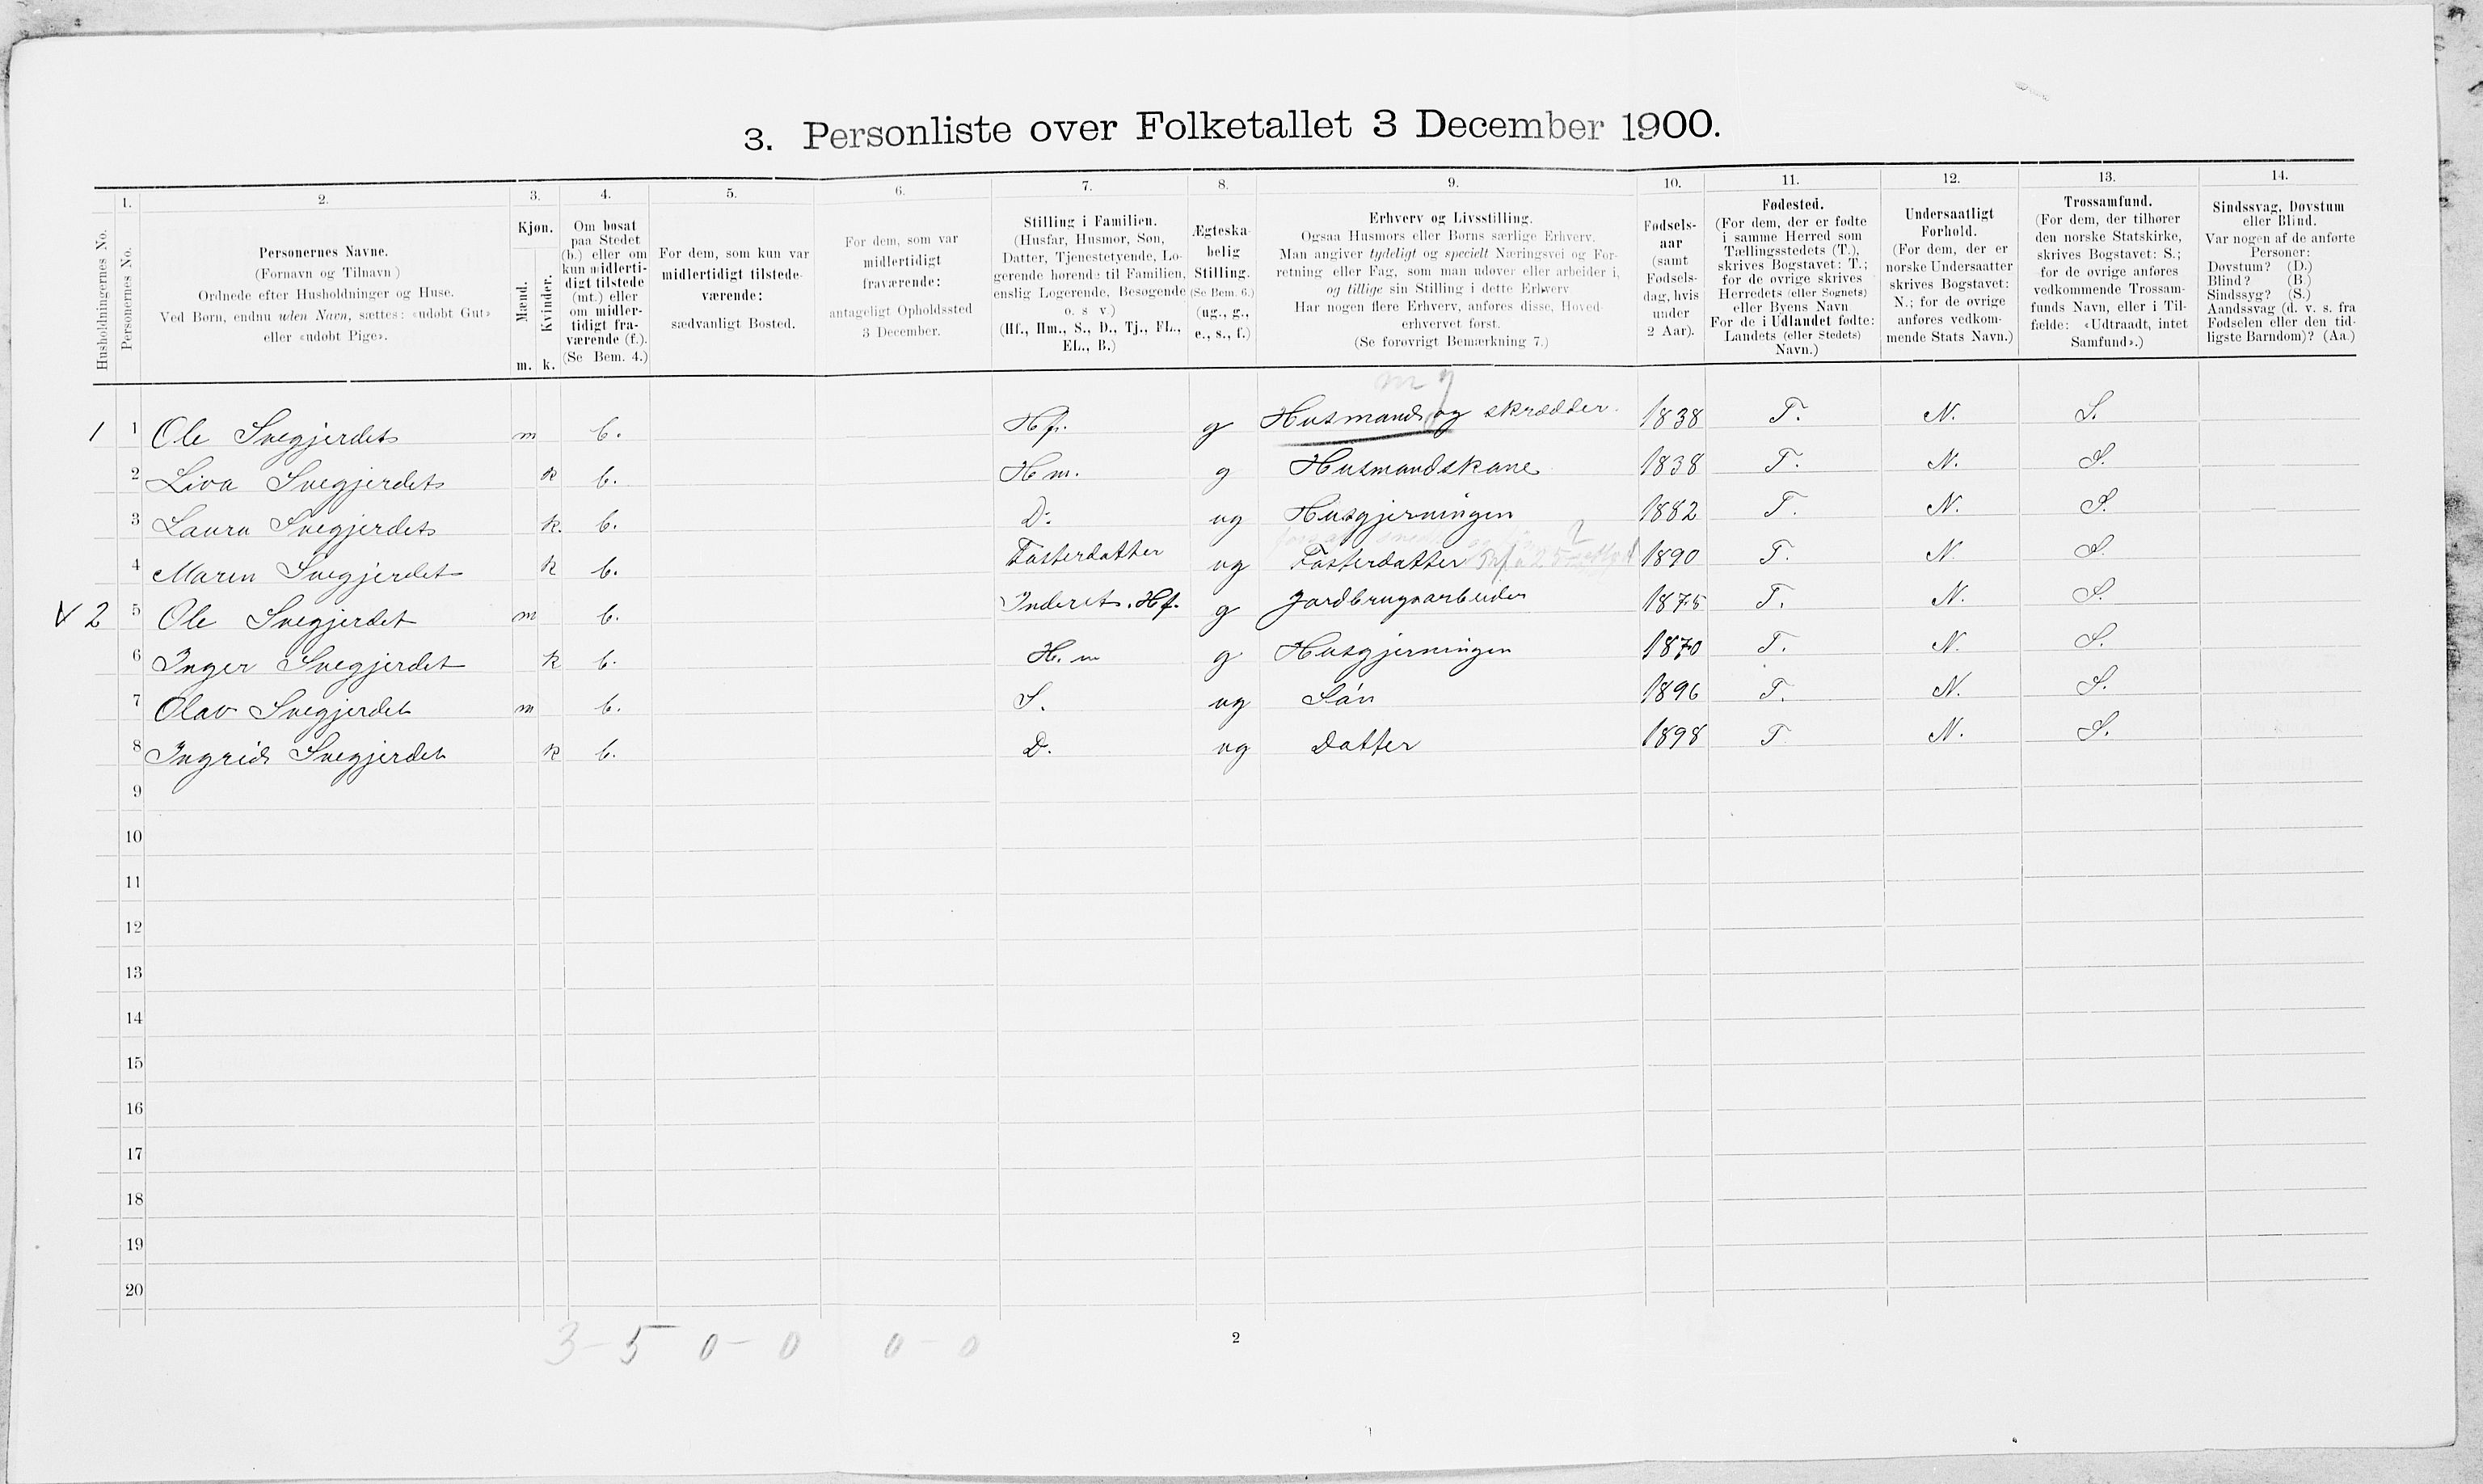 3. Personliste over Folketallet 3 December 1900.
1. 2. 3. 4. 5. 6. 7. 8. 9. 10. 11. 12. 13. 14.
Husholdningernes No.
Personernes No.
Personernes Navne.
(Fornavn og Tilnavn)
Ordnede efter Husholdninger og Huse.
Ved Børn, endnu uden Navn, sættes: «udøbt Gut»
eller «udøbt Pige».
Kjøn.
Mænd.
Kvinder.
m. k.
Om bosat
paa Stedet
(b.) eller om
kun midlerti-
digt tilstede
(mt.) eller
om midler-
tidigt fra-
værende (f.).
(Se Bem. 4.)
For dem, som kun var
midlertidigt tilstede-
værende:
sædvanligt Bosted.
For dem, som var
midlertidigt
fraværende:
antageligt Opholdssted
3 December.
Stilling i Familien.
(Husfar, Husmor, Søn,
Datter, Tjenestetyende, Lo-
gerende hørende til Familien,
enslig Logerende, Besøgende
o. s. v.)
(Hf., Hm., S., D., Tj., FL.,
EL., B.)
Ægteska-
belig
Stilling.
(Se Bem. 6.)
(ug., g.,
e., s., f.)
Erhverv og Livsstilling.
Ogsaa Husmors eller Børns særlige Erhverv.
Man angiver tydeligt og specielt Næringsvei og For-
retning eller Fag, som man udøver eller arbeider i,
og tillige sin Stilling i dette Erhverv
Har nogen flere Erhverv, anføres disse, Hoved-
erhvervet først.
(Se forøvrigt Bemærkning 7.)
Fødsels-
aar
(samt
Fødsels-
dag, hvis
under
2 Aar).
Fødested.
(For dem, der er fødte
i samme Herred som
Tællingsstedets (T.),
skrives Bogstavet: T.;
for de øvrige skrives
Herredets (eller Sognets)
eller Byens Navn
For de i Udlandet fødte:
Landets (eller Stedets)
Navn.)
Undersaatligt
Forhold.
(For dem, der er
norske Undersaatter
skrives Bogstavet:
N.; for de øvrige
anføres vedkom-
mende Stats Navn.)
Trossamfund.
(For dem, der tilhører
den norske Statskirke,
skrives Bogstavet: S.;
for de øvrige anføres
vedkommende Trossam-
funds Navn, eller i Til-
fælde: «Udtraadt, intet
Samfund».)
Sindssvag, Døvstum
eller Blind.
Var nogen af de anførte
Personer:
Døvstum? (D.)
Blind? (B.)
Sindssyg? (S.)
Aandssvag (d. v. s. fra
Fødselen eller den tid-
ligste Barndom)? (Aa.)
1 1 Ole Svegjerdets m b. Hf. g Husmand og skrædder. 1838 T. N. S.
2 Liva Svegjerdets k b. Hm. g Husmandskone 1838 T. N. S.
3 Laura Svegjerdets k. b. D. ug Husgjerningen 1882 T. N. S.
4 Maren Svegjerdet k b. Fosterdatter ug Fosterdatter 1890 T. N. S.
2 5 Ole Svegjerdet m b. Inderst. Hf. g Jordbrugsarbeider 1875 T. N. S.
6 Inger Svegjerdet k b. H. m g Husgjerningen 1870 T. N. S.
7 Olav Svegjerdet m b. S. ug Són 1896 T. N. S.
8 Ingrid Svegjerdet k b. D. ug Datter 1898 T N. S.
9
10
11
12
13
14
15
16
17
18
19
20
3 - 5 0 - 0 0 - 0
2